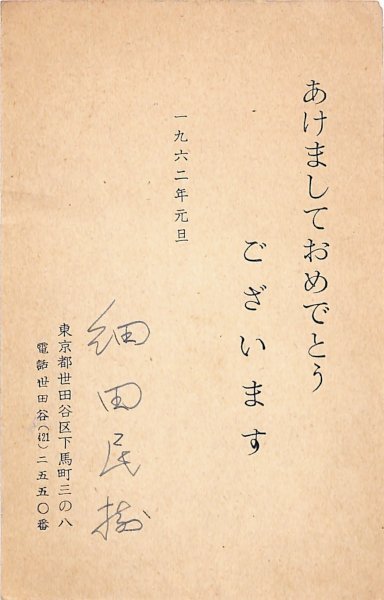 あけましておめでとう
ございます
一九六二年元旦
細田民樹
東京都世田谷区下馬町三の八
電話世田谷(421)二五五〇番